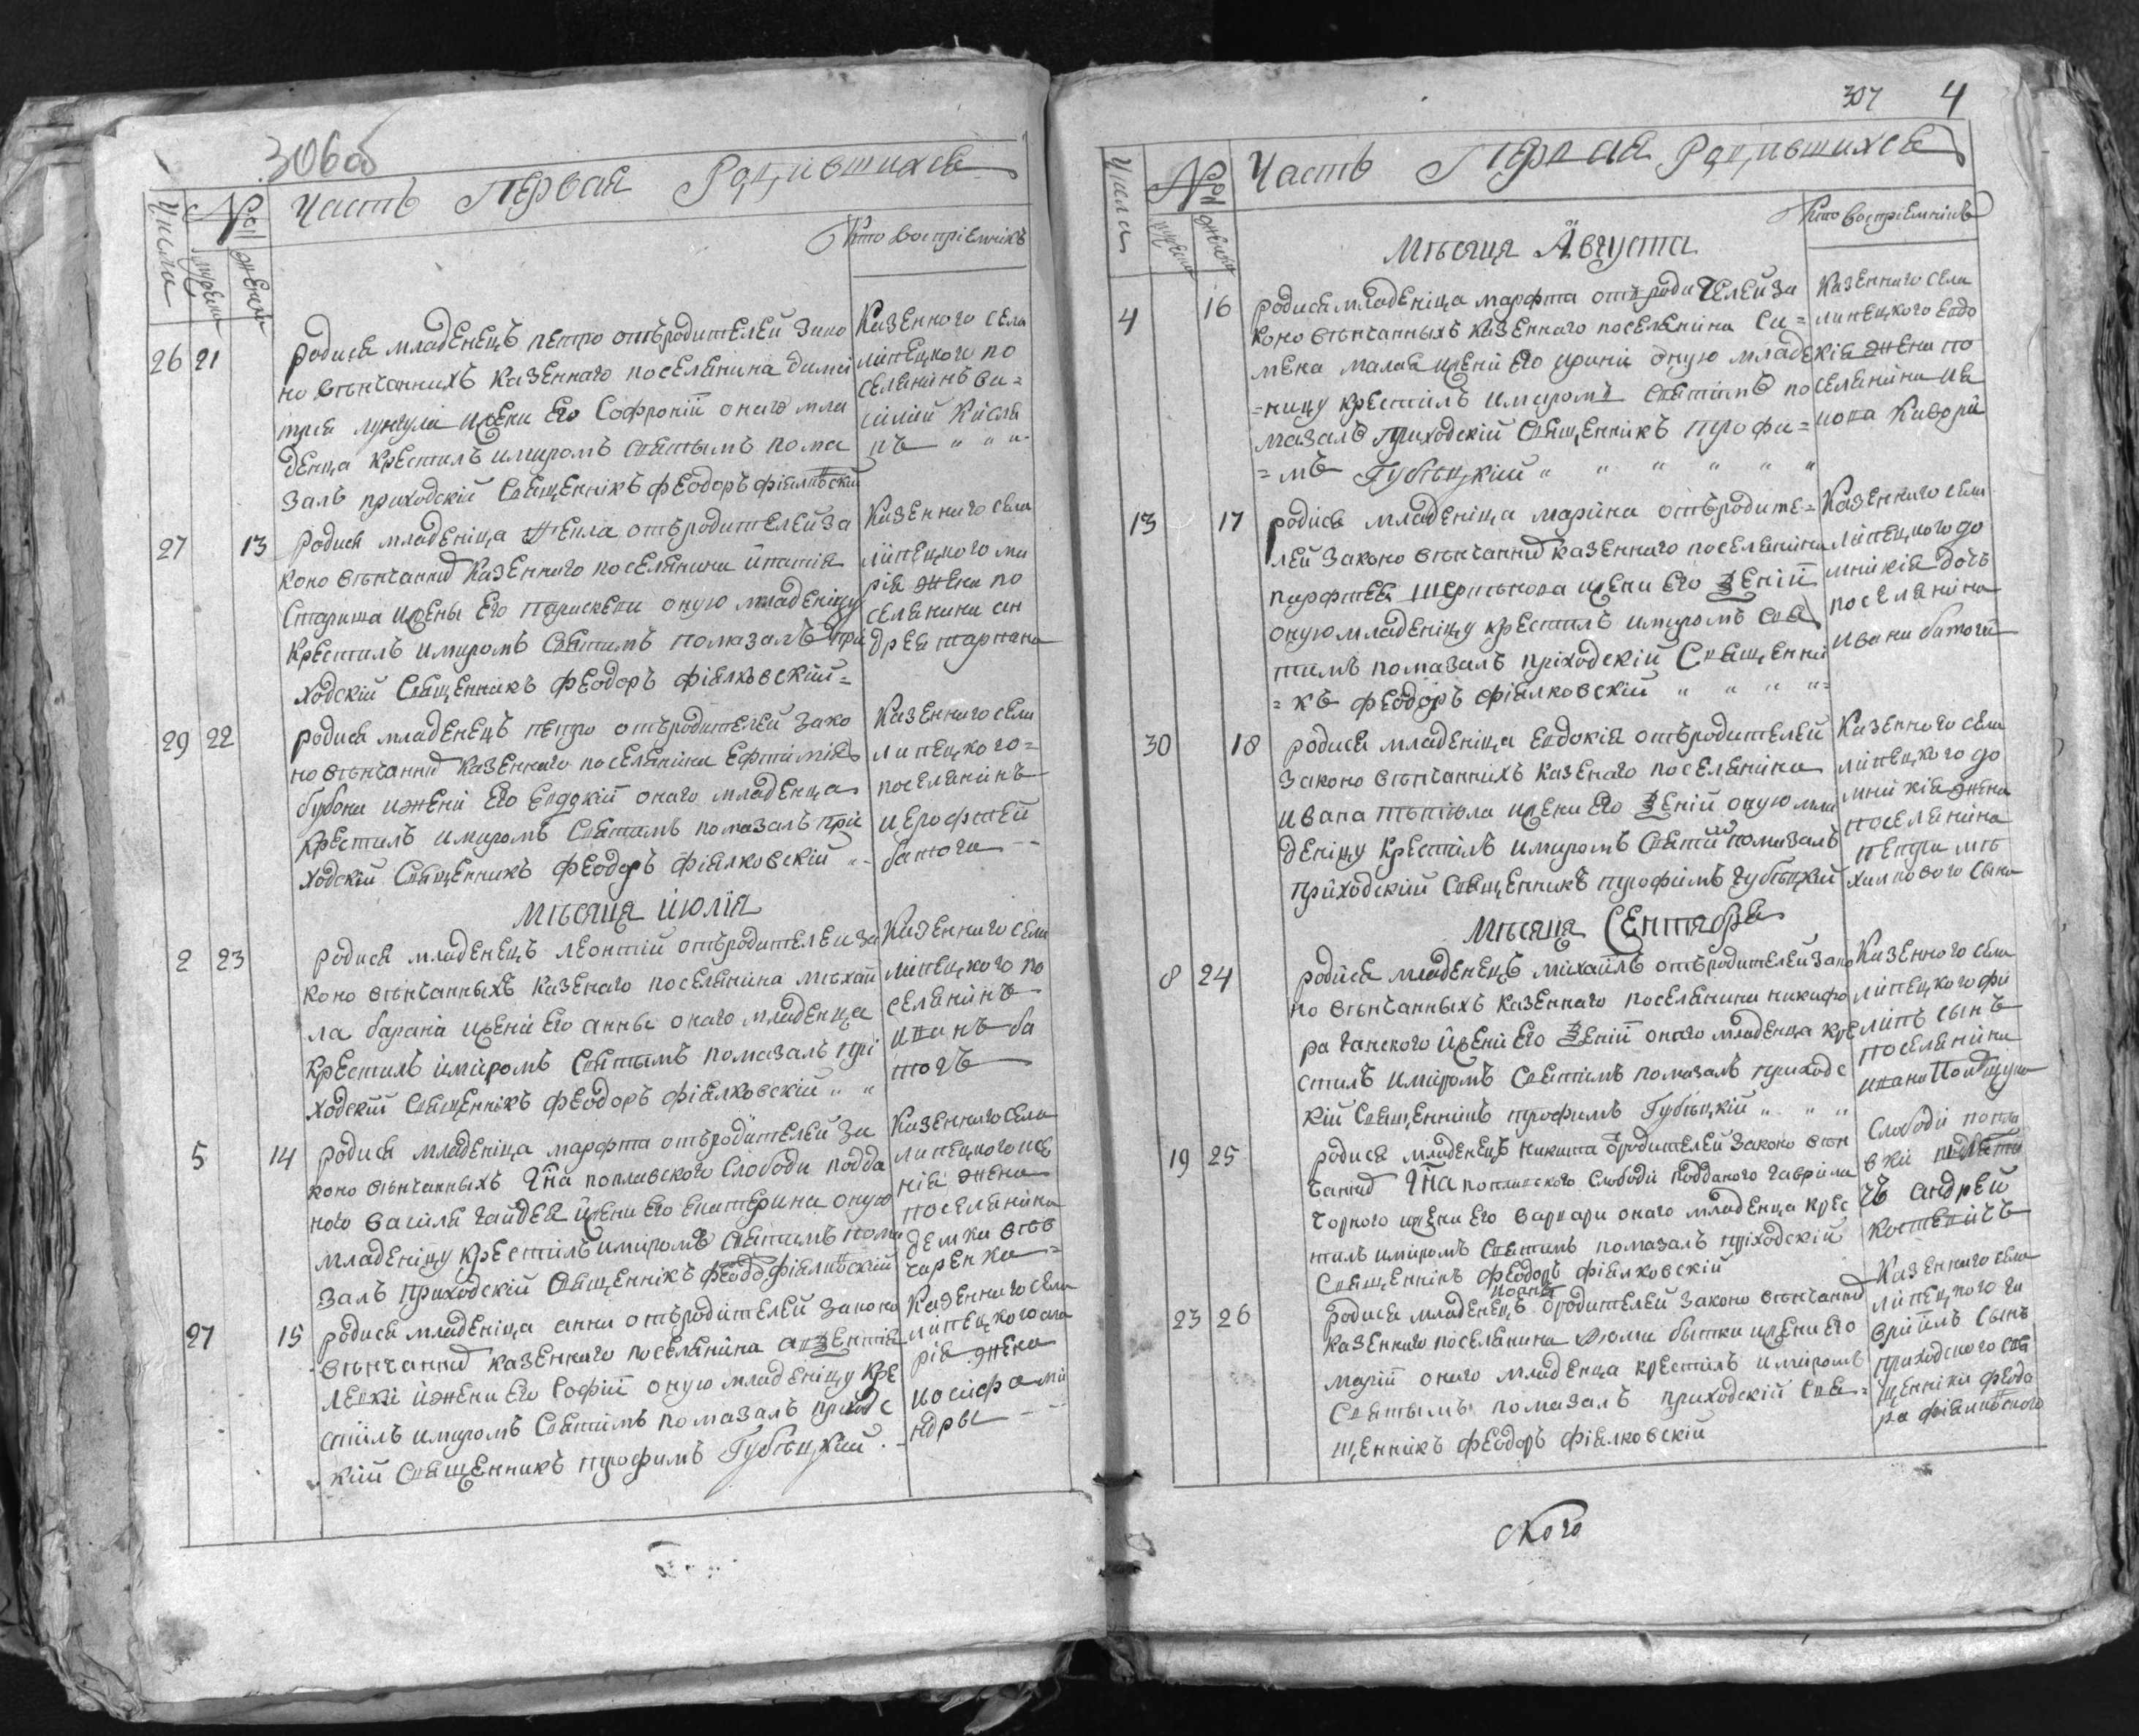 306об
Часть Первая Родившихся
Числа
№
мужеска
женска
Кто воспріемникъ
26 21
Родися младенецъ петро отъ родителей зако
но венчаннихъ казенного поселянина дими
трея лунгула и жени его Софроніи оного мла
денца крестилъ и миромъ святымъ пома
залъ приходскій Священнікъ феодоръ фіялковскій
Казенного села
липецкого по
селянинъ ва=
силій Кисля
къ
27 13
Родися младеніца Фекла отъ родителей за
коно венчаннихъ казенного поселянина ипатія
и жены его параскеви оную младеніцу
крестилъ и миромъ святимъ помазалъ при
ходскій Священникъ феодоръ фіялковскій=
Казенного села
липецкого ма
рія жена по
селянина ан
дрея тарпана
29 22
родися младенецъ петро отъ родителей зако
но венчаннихъ казенного поселяніна ефтимія
бубони и жени его евдокіи оного младенца
крестилъ и миромъ святимъ помазалъ при
ходскій Священникъ феодоръ фіялковскій
Казенного села
липецкого=
поселянінъ
иерофтей
батоги
Месяца июлія
2 23
родися младенецъ леонтій отъ родителей за
коно венчанныхъ казенаго поселянина михаи
ла баранa и жени его анны оного младенца
крестилъ и миромъ святымъ помазалъ при
ходскій Священнікъ феодоръ фіялковскій
Казенного села
липецкого по
селянінъ
иванъ ба
тогъ
5 14
родися младеніца марфта отъ родителей за
коно венчанныхъ Гна поплавского Слободи подда
ного василя гайдея и жени его екатерини оную
младеніцу крестилъ и миромъ святимъ пома
залъ приходскій Священнікъ феодоръ фіялковскій
Казенного села
липецкого
жена
поселянина
демка
чаренка=
27 15
родися младеніца анна отъ родителей законо
венчаннихъ казенного поселянина авзентія
левкі и жени его Софіи оную младеніцу кре
стилъ и миромъ святимъ помазалъ приходс
кій Священникъ трофимъ Губецкій
Казенного села
липецкого ма
рія жена
иосифа
ндры
307 4
Часть Первая Родившихся
Числа
№
мужеска
женска
Кто воспріемнікъ
Месяца Августа
4 16
родися младеніца марфта отъ родителей за
коно венчанныхъ казенного поселянина Си=
мена малая и жени его ирини оную младе
=ницу крестилъ и миромъ святимъ по
мазалъ приходскій Священникъ трофи=
=мъ Губецкій
Казенного села
липецкого евдо
кія жена по
селянина
13 17
родися младеніца марина отъ родите=
лей законо венчаннихъ казенного поселянина
парфтея и жени его зеніи
оную младеніцу крестилъ и миромъ свя
тимъ помазалъ приходскій Священни
=къ феодоръ фіялковскій
Казенного села
липецкого до
мнікія дочь
поселяніна
ивана батоги
30 18
родися младеніца евдокія отъ родителей
законо венчанніхъ казеного поселяніна
ивана и жени его зеніи оную мла
деніцу крестилъ и миромъ святи помазалъ
приходскій Священникъ трофимъ губецкій
Казенного села
липецкого до
мнікія жена
поселянина
петра
сына
Месяца Сентября
8 24
родися младенецъ михаилъ отъ родителей зако
но венчанныхъ казенного поселянина никифо
ра ганского и жени его зеніи оного младенца кре
стилъ и миромъ святимъ помазалъ приходс
кій Священникъ трофимъ Губецкій
Казенного села
липецкого фи
липъ сынъ
поселяніна
ивана
19 25
родися младенецъ никита отъ родителей законо вен
чаннихъ Гна поплавского Слободи подданого гавріила
чорного и жени его варвари оного младенца крес
тилъ и миромъ святимъ помазалъ приходскій
Священникъ феодоръ фіялковскій
Слободи
андрей
костевичъ
23 26
родися младенецъ иоанъ отъ родителей законо венчаннихъ
казенного поселянина фоми бытки и жени его
маріи оного младенца крестилъ и миромъ
Святымъ помазалъ приходскій Свя=
щенникъ феодоръ фіялковскій
Казенного села
липецкого га
вріилъ сынъ
приходского свя
щенника феодо
ра фіялковского
ского